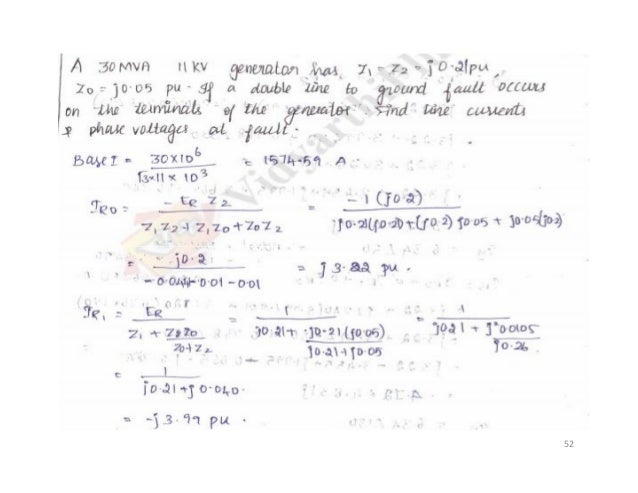 A 30 MVA 11 KV generator has Z1 = Z2 = j0.21pu,
Z0 = j0.05 pu. If a double line to ground fault occurs
on the terminals of the generator. Find line currents
& phase voltages at fault.
Base I = 30×10^6 / √3×11×10^3 = 1574.59 A
IR0 = -ER Z2 / Z1Z2 + Z1Z0 + Z0Z2 = -1 (j0.2) / j0.21(j0.21)+(j0.2) j0.05 + j0.05(j0.2)
= -j0.2 / -0.044-0.01-0.01 = j3.22 pu.
IR1 = ER / Z1 + Z2Z0 / Z0+Z2 = 1 / j0.21+ j0.21(j0.05) / j0.21+j0.05 = 1 / j0.21 + j²0.0105 / j0.26
= 1 / j0.21+j0.040.
= -j3.99 pu.
Vidyarthi
52